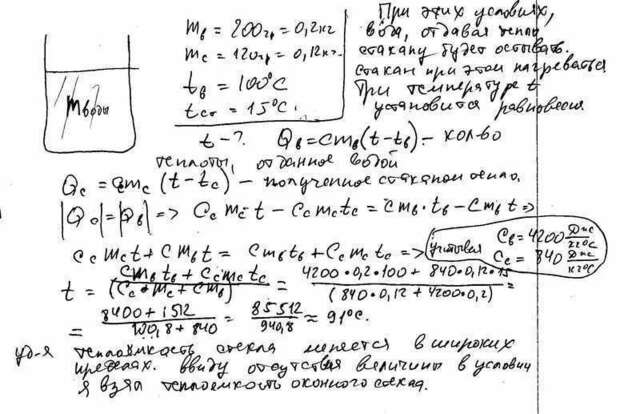 mв = 200гр = 0,2кг
mс = 120гр = 0,12кг.
tв = 100°C
tст = 15°C.
t - ?
При этих условиях,
вода, отдавая тепло
стакану будет остывать.
стакан при этом нагреваться
При температуре t
установится равновесие
mводы
Qв = cmв(t-tв) - кол-во
теплоты, отданное водой
Qс = cmс(t-tс) - полученное стаканом тепло.
|Qс|=|Qв| => Cс mс t - Cс mс tс = cmв·tв - Cmв t =>
Cс mс t + Cmв t = Cmв tв + Cс mс tс =>
учитывая Cв=4200 Дж/кг°C
Cс = 840 Дж/кг°C
t = Cmв tв + Cс mс tс / (Cс·mс + Cmв) = 4200·0,2·100 + 840·0,12·15 / (840·0,12 + 4200·0,2) =
= 8400 + 1512 / 100,8 + 840 = 85512 / 940,8 ≈ 91°C.
уд-я теплоёмкость стекла меняется в широких
пределах. ввиду отсутствия величины в условии
я взял теплоемкость оконного стекла.